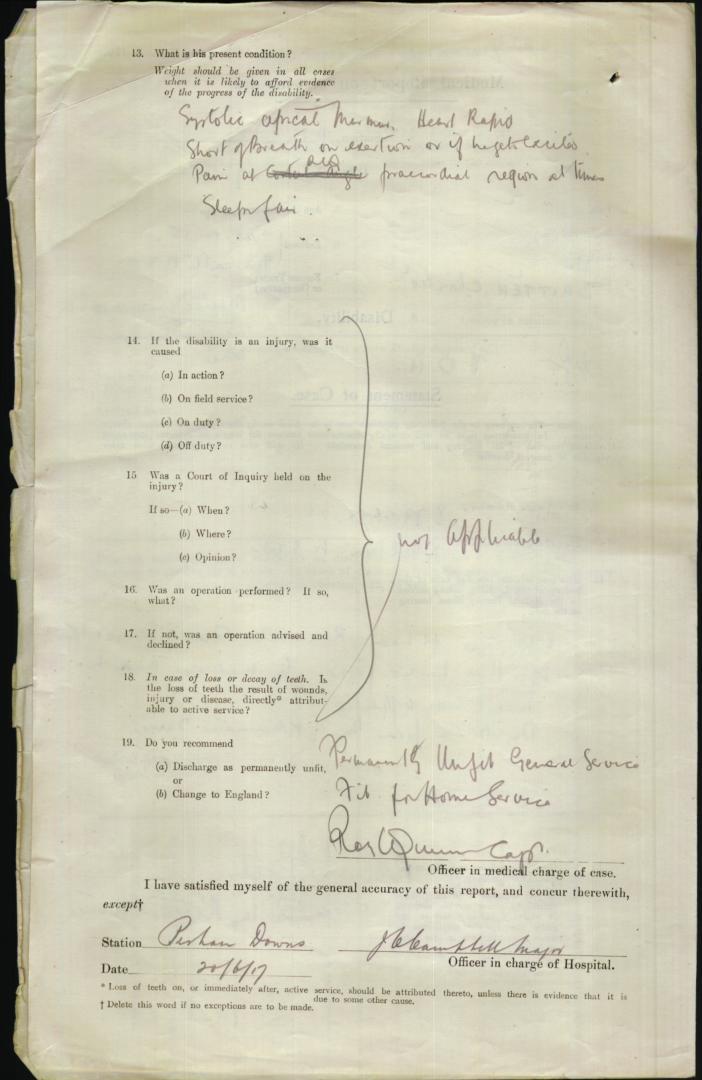 13. What is his present condition?
Weight should be given in all cases
when it is likely to afford evidence
of the progress of the disability.
Systolic apical Murmur. Heart Rapid
Short of Breath on exertion or if he gets excited
Pain at praecordial region at times
Sleeps fair
14. If the disability is an injury, was it
caused
(a) In action?
(b) On field service?
(c) On duty?
(d) Off duty?
15 Was a Court of Inquiry held on the
injury?
If so—(a) When?
(b) Where?
(c) Opinion?
not applicable
16. Was an operation performed? If so,
what?
17. If not, was an operation advised and
declined?
18. In case of loss or decay of teeth. Is
the loss of teeth the result of wounds,
injury or disease, directly* attribut-
able to active service?
19. Do you recommend
(a) Discharge as permanently unfit,
or
(b) Change to England?
Permanently Unfit General Service
Fit for Home Service
Capt.
Officer in medical charge of case.
I have satisfied myself of the general accuracy of this report, and concur therewith,
except†
Station Perham Downs J C Campbell Major
Officer in charge of Hospital.
Date 20/6/17
* Loss of teeth on, or immediately after, active service, should be attributed thereto, unless there is evidence that it is
due to some other cause.
† Delete this word if no exceptions are to be made.